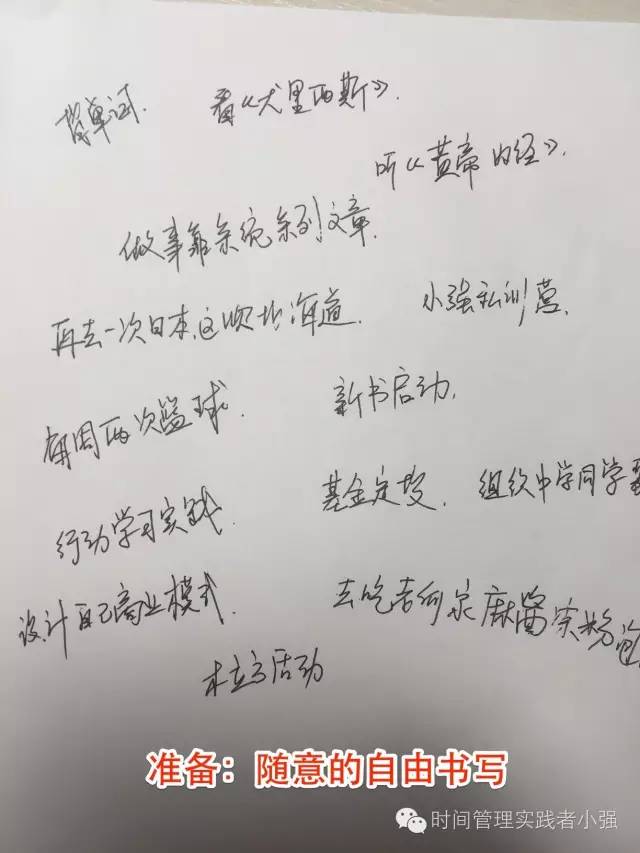 背单词. 看《尤里西斯》.
听《黄帝内经》.
做事靠系统系列文章.
再去一次日本,这次北海道. 小强私训营.
每周两次篮球. 新书启动.
行动学习实践. 基金定投. 组织中学同学聚
设计自己商业模式. 去吃
木立方活动
准备：随意的自由书写
时间管理实践者小强